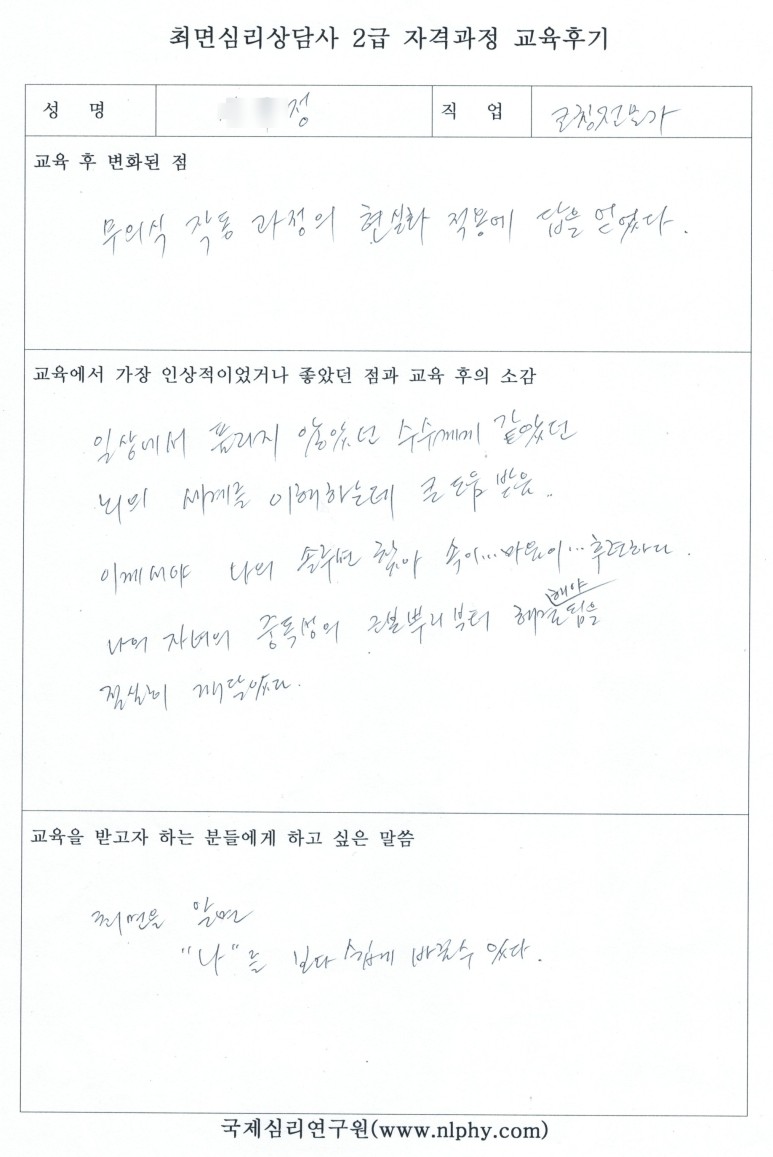 최면심리상담사 2급 자격과정 교육후기
성 명 정 직 업 코칭전문가
교육 후 변화된 점
무의식 작동 과정의 현실화 적용에 답을 얻었다.
교육에서 가장 인상적이었거나 좋았던 점과 교육 후의 소감
일상에서 풀리지 않았던 수수께끼 같았던
뇌의 세계를 이해하는데 큰 도움 받음..
이제서야 나의 솔루션 찾아 속이...마음이...후련하다.
나의 자녀의 중독성의 근본뿌리부터 해결해야됨을
절실히 깨달았다.
교육을 받고자 하는 분들에게 하고 싶은 말씀
최면을 알면
"나"를 보다 쉽게 바꿀수 있다.
국제심리연구원(www.nlphy.com)